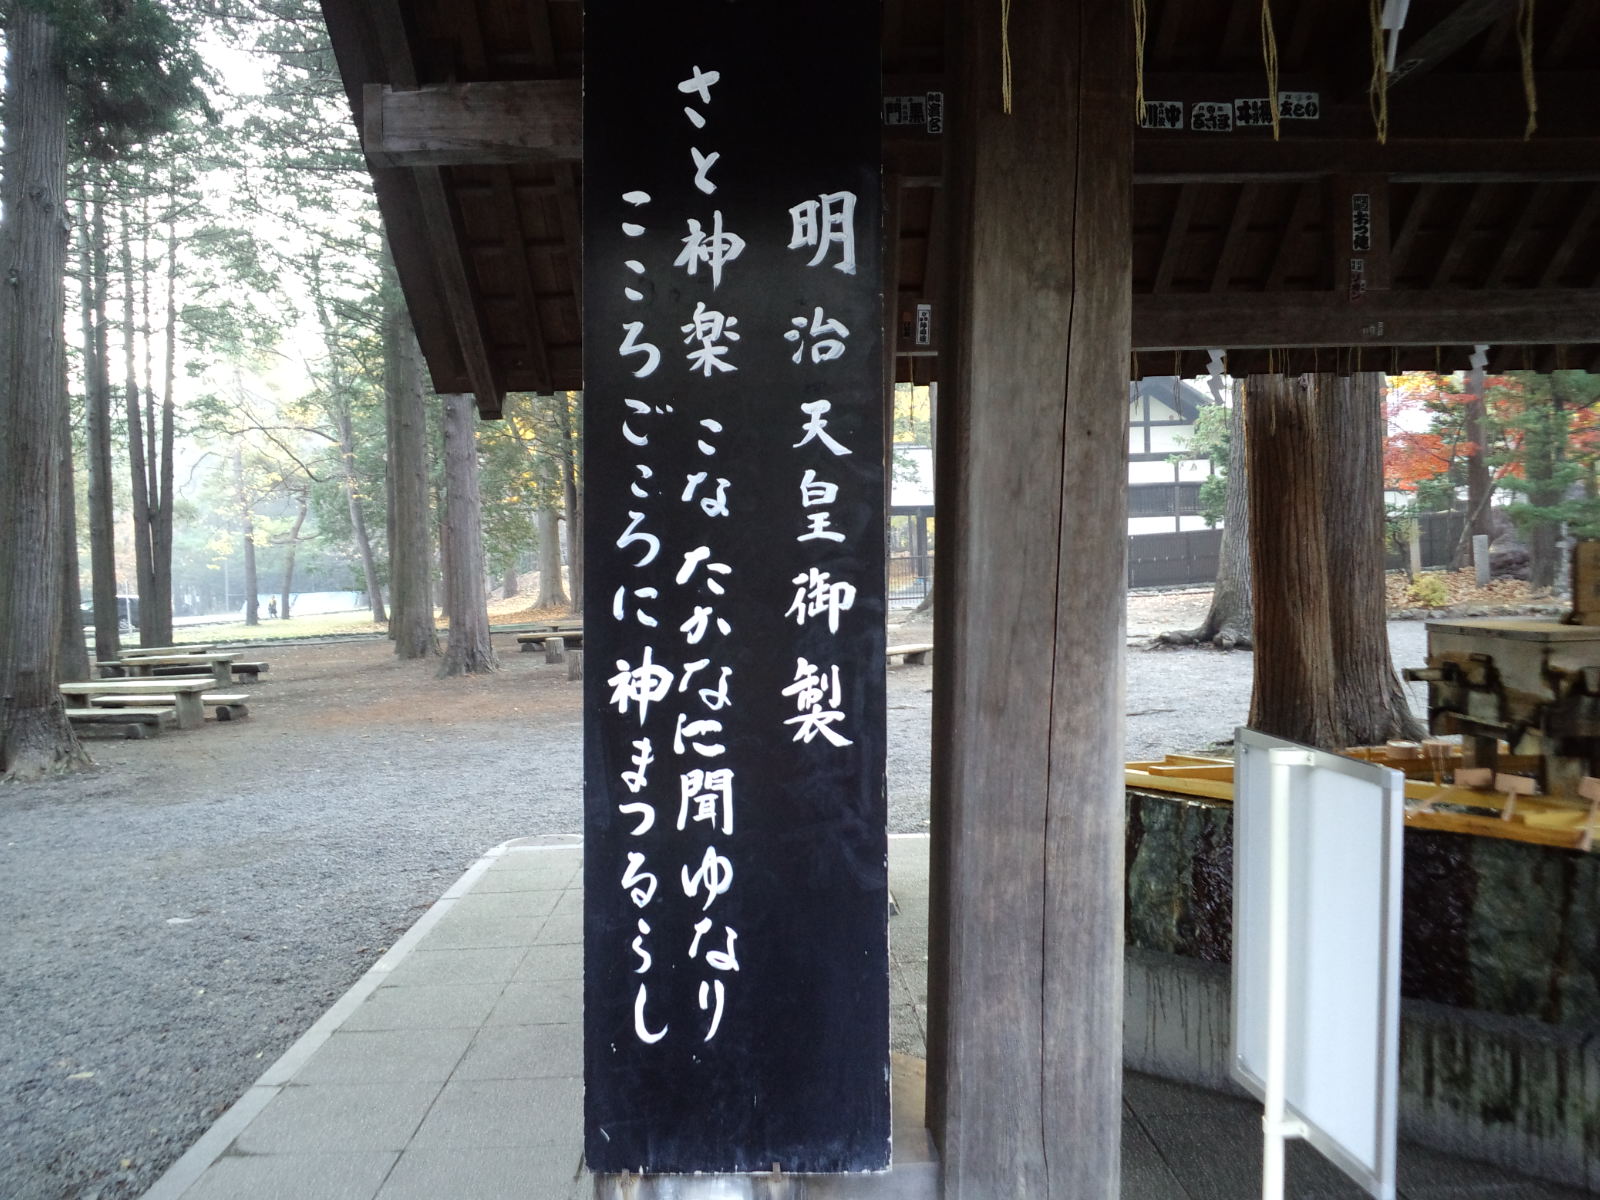 明治天皇御製
さと神楽こなたかなたに聞ゆなり
こころごころに神まつるらし
黒門
中川